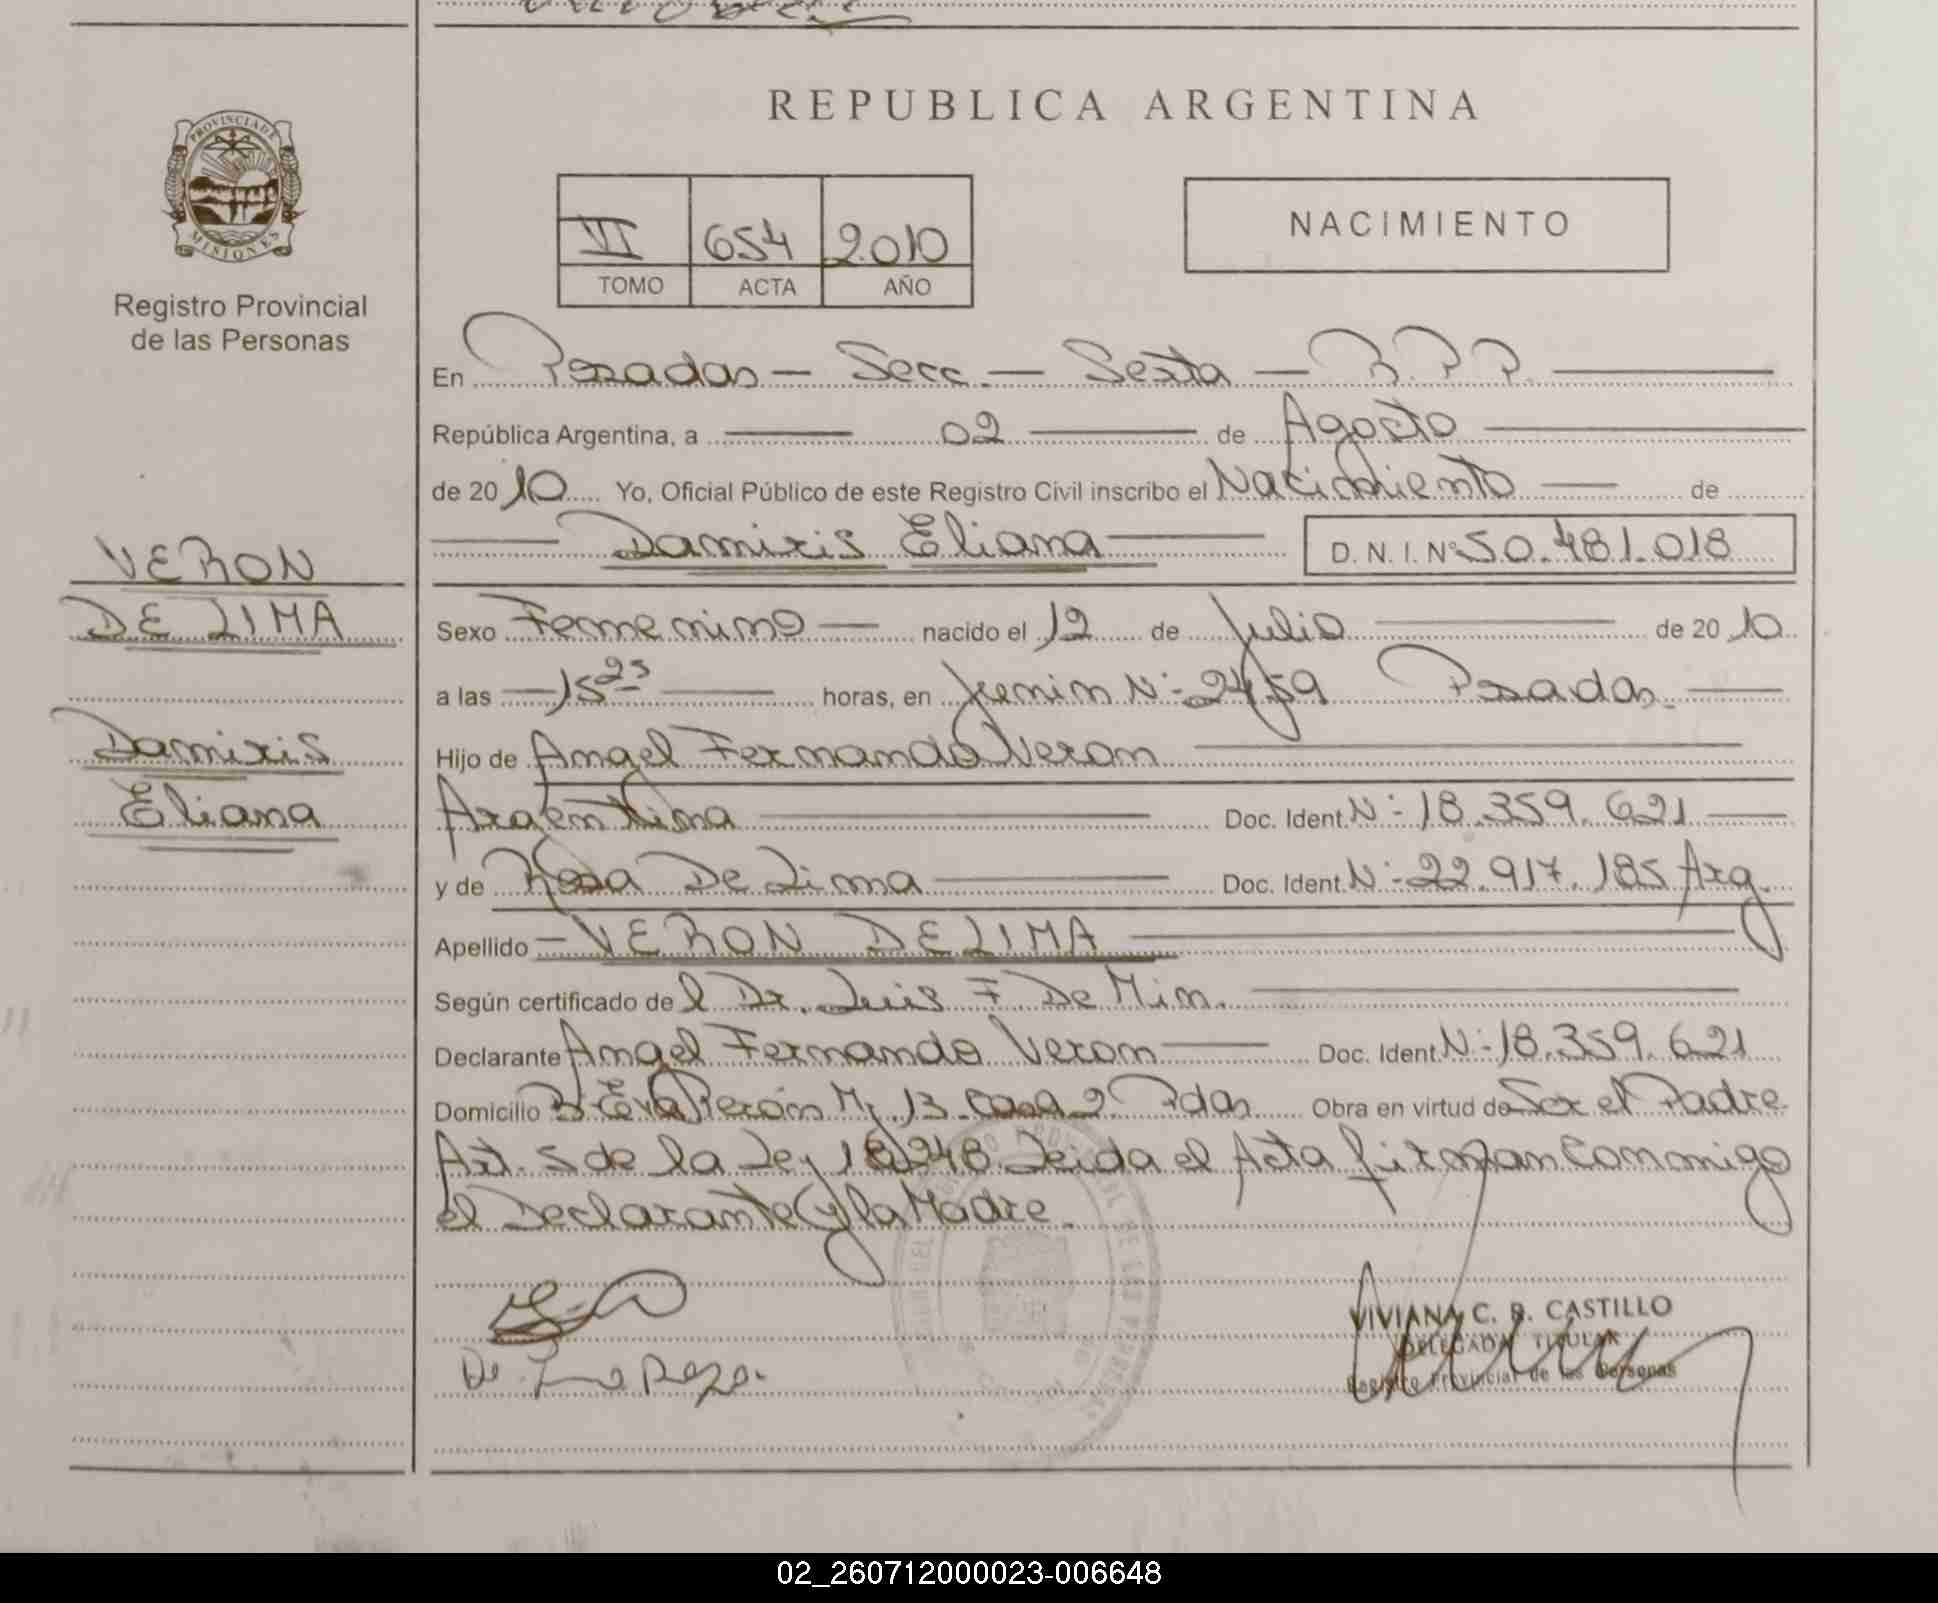 REPUBLICA ARGENTINA
PROVINCIA DE MISIONES
Registro Provincial
de las Personas
VI 654 2010
TOMO ACTA AÑO
NACIMIENTO
En Posadas - Secc. - Sexta - R.P.P.
República Argentina, a 02 de Agosto
de 2010 Yo, Oficial Público de este Registro Civil inscribo el Nacimiento de
Damiris Eliana D. N. I. Nº 50.481.018
VERON
DE LIMA
Damiris
Eliana
Sexo Femenino nacido el 12 de Julio de 2010
a las 15 25 horas, en Junin Nº 2459 Posadas.
Hijo de Angel Fernando Veron
Argentina Doc. Ident. Nº 18.359.621
y de Rosa De Lima Doc. Ident. Nº 22.917.185 Arg.
Apellido VERON DE LIMA
Según certificado del Dr. Luis F De Min.
Declarante Angel Fernando Veron Doc. Ident. Nº 18.359.621
Domicilio Bº Eva Perón Mz 13 Casa 2 Pdas Obra en virtud de Ser el Padre
Art. 5 de la Ley 18248 Leida el Acta firman Conmigo
el Declarante y la Madre.
De Lima Rosa.
VIVIANA C. B. CASTILLO
DELEGADA TITULAR
Registro Provincial de las Personas
02_260712000023-006648